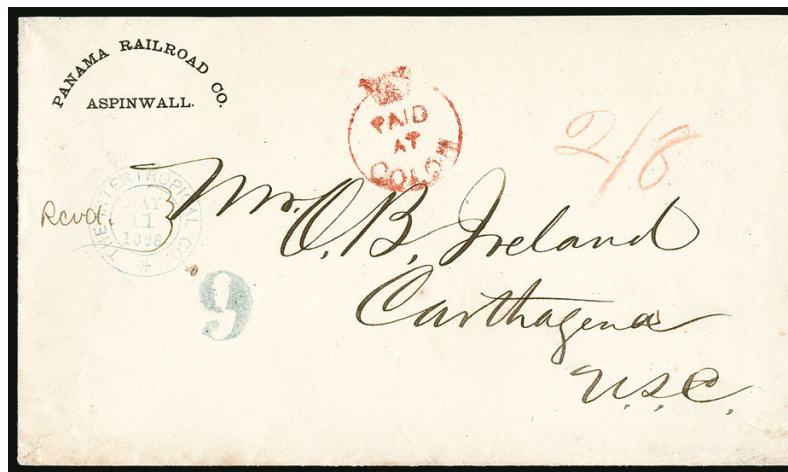 PANAMA RAILROAD CO.
ASPINWALL.
PAID
AT
COLON
2/8
Rcvd.
THE INTERTROPICAL CO.
MAY
11
1868
Mr. O. B. Ireland
9
Carthagena
U.S.C.